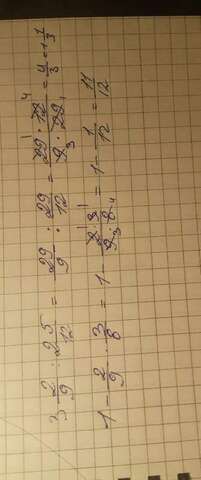 3 2/9 : 2 5/12 = 29/9 : 29/12 = 29 · 12 / 9 · 29 = 4/3 = 1 1/3
1 - 2/9 · 3/8 = 1 - 2 · 3 / 9 · 8 = 1 - 1/12 = 11/12